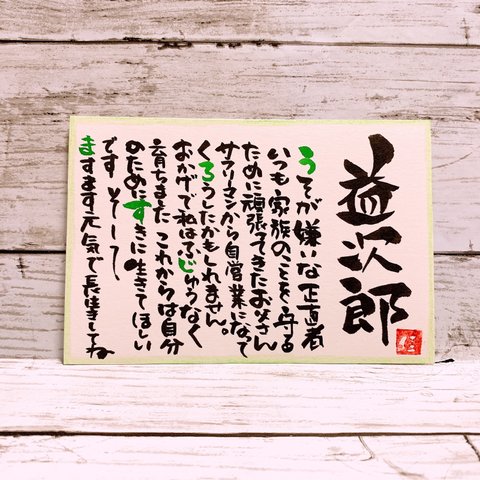 益次郎
うそが嫌いな正直者
いつも家族のことを守る
ために頑張ってきたお父さん
サラリーマンから自営業になって
くろうしたかもしれません。
おかげで私はふじゆうなく
育ちました これからは自分
のためにすきに生きてほしい
です そして、
ますます元気で長生きしてね